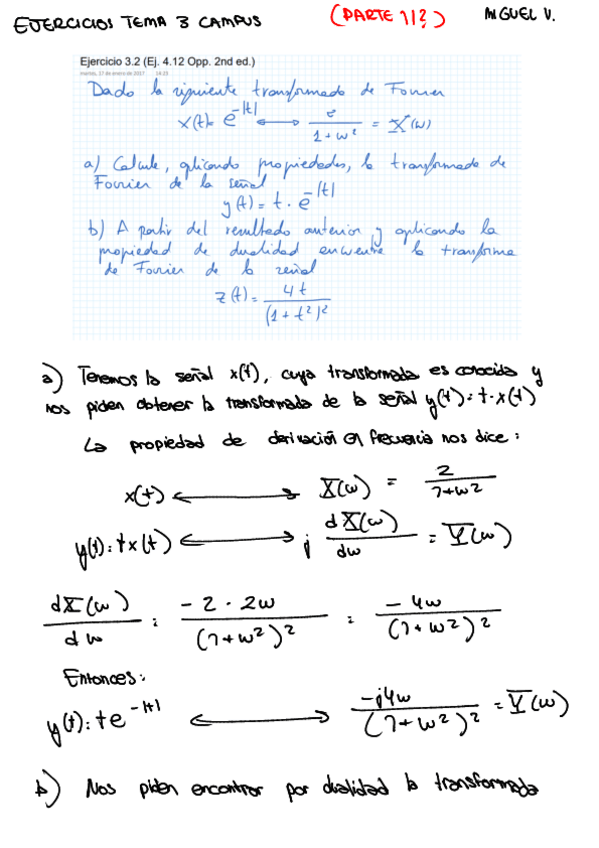 EJERCICIOS TEMA 3 CAMPUS (PARTE 1!?) MIGUEL V.
Ejercicio 3.2 (Ej. 4.12 Opp. 2nd ed.)
martes, 17 de enero de 2017 14:23
Dado la siguiente transformada de Fourier
x(t) = e^{-|t|} ⟷ 2/(1+ω²) = X(ω)
a) Calcule, aplicando propiedades, la transformada de
Fourier de la señal
y(t) = t · e^{-|t|}
b) A partir del resultado anterior y aplicando la
propiedad de dualidad encuentre la transforma
de Fourier de la señal
z(t) = 4t/(1+t²)²
a) Tenemos la señal x(t), cuya transformada es conocida y
nos piden obtener la transformada de la señal y(t) = t·x(t)
La propiedad de derivación en frecuencia nos dice:
x(t) ⟷ X(ω) = 2/(1+ω²)
y(t) = tx(t) ⟷ j dX(ω)/dω = Y(ω)
dX(ω)/dω = -2·2ω/(1+ω²)² = -4ω/(1+ω²)²
Entonces:
y(t) = te^{-|t|} ⟷ -j4ω/(1+ω²)² = Y(ω)
b) Nos piden encontrar por dualidad la transformada